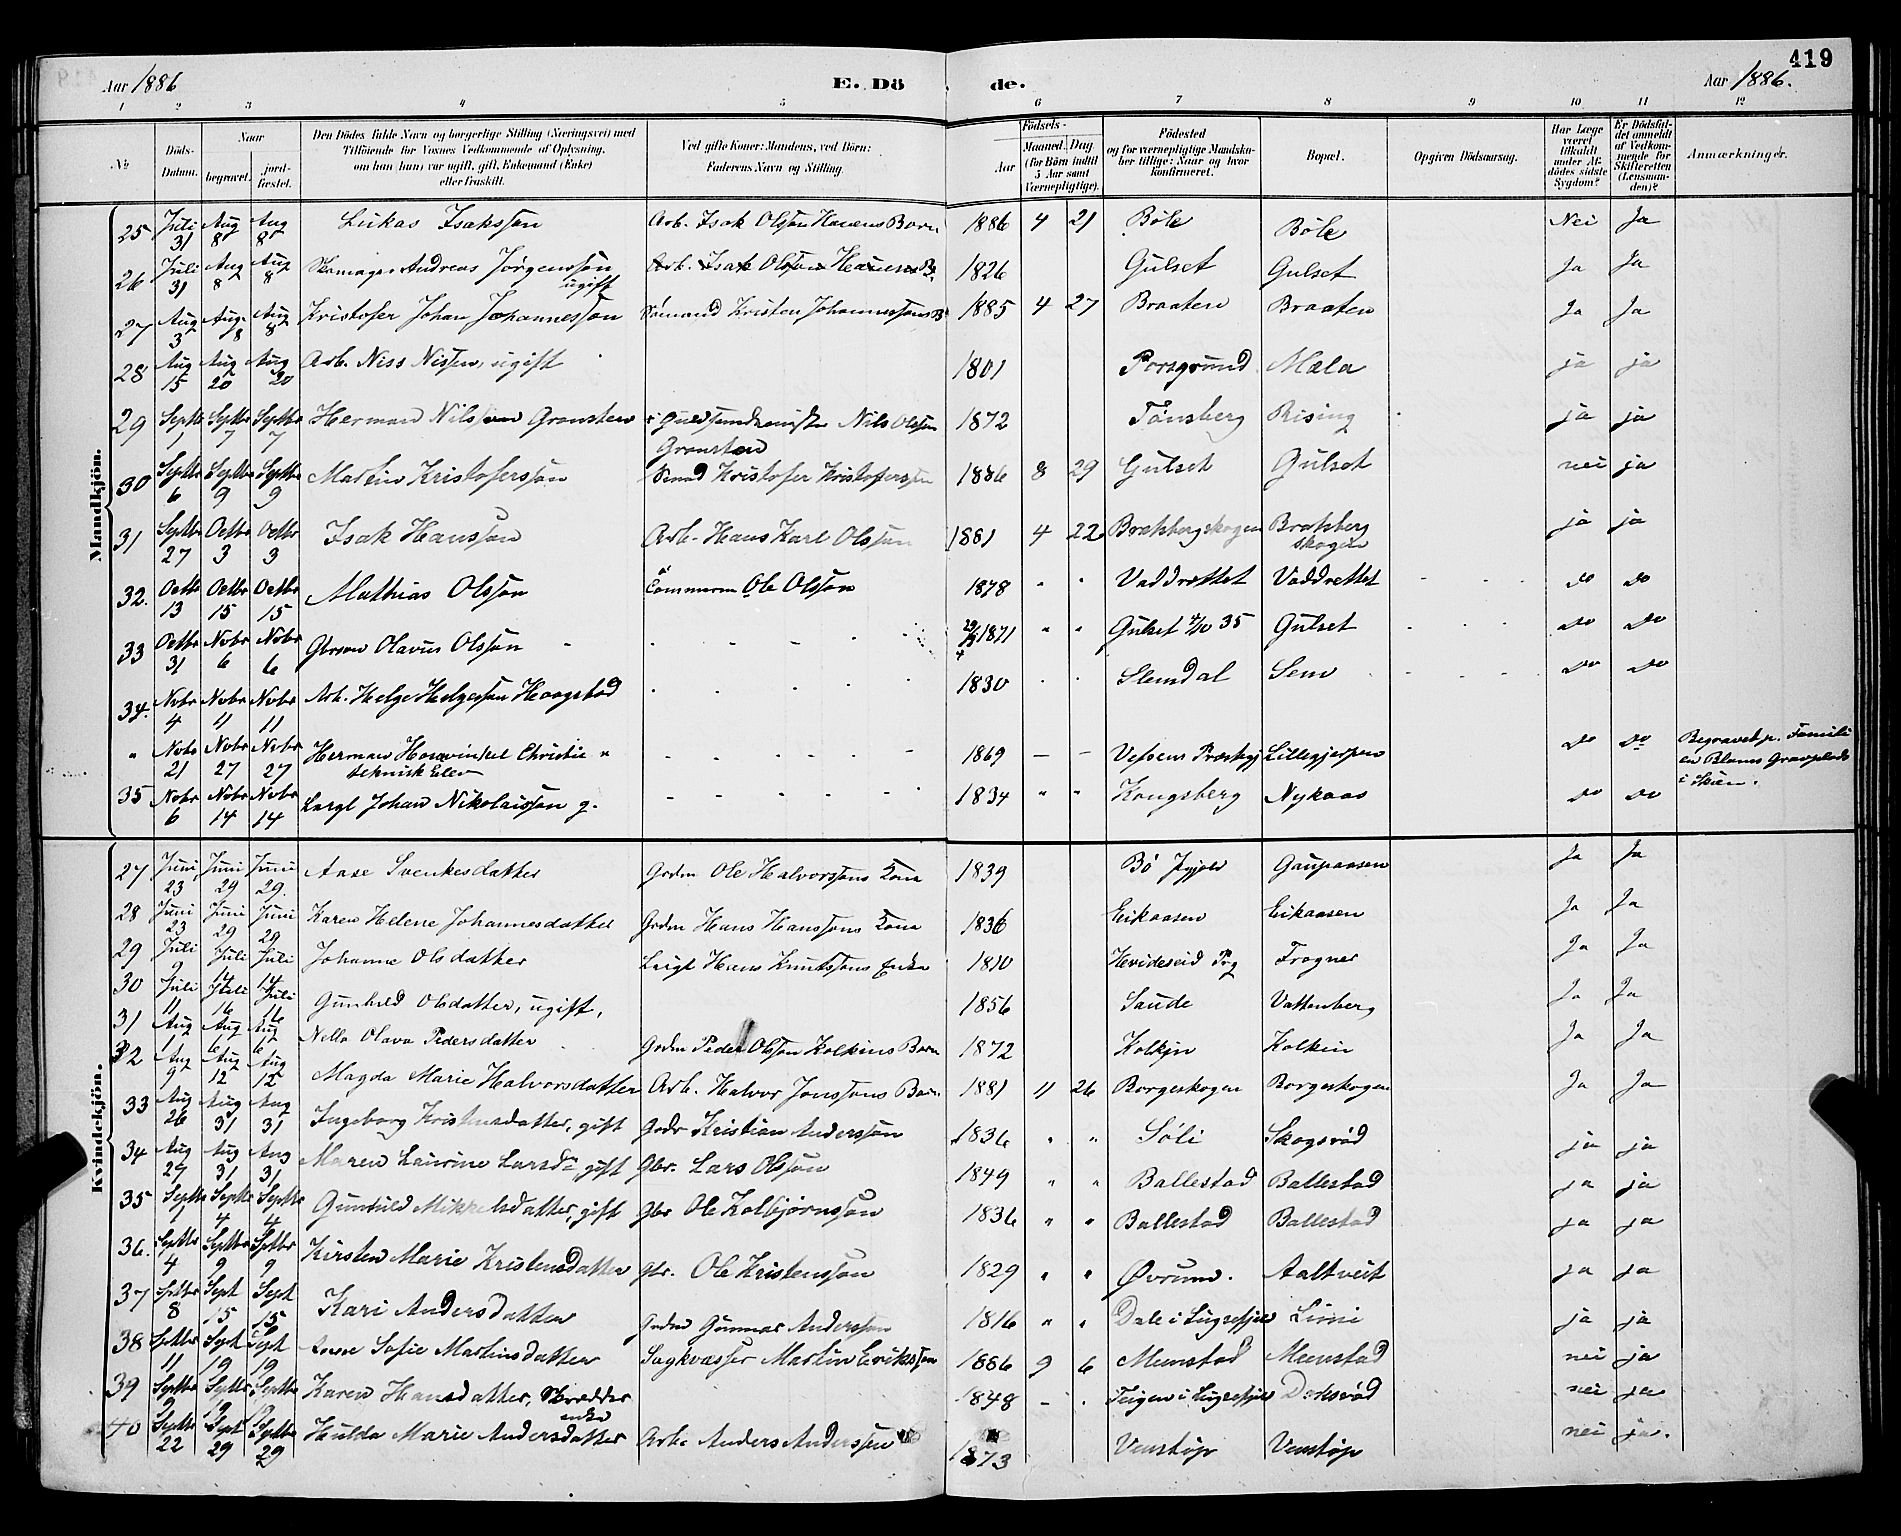 419
Aar 1886 E. Dö de. Aar 1886.
1 2 3 4 5 6 7 8 9 10 11 12
№ Döds-Datum. Naar begravet. jordfæstet. Den Dödes fulde Navn og borgerlige Stilling (Næringsvei) med Tilföiende for Voxnes Vedkommende af Oplysning, om han (hun) var ugift, gift, Enkemand (Enke) eller fraskilt. Ved gifte Koner: Mandens, ved Börn: Faderens Navn og Stilling. Födsels- Aar Maaned. Dag (for Börn indtil 5 Aar samt Værnepligtige). Födested og for værnepligtige Mandskaber tillige: Naar og hvor konfirmeret. Bopæl. Opgiven Dödsaarsag. Har Læge været tilkaldt under Afdödes sidste Sygdom? Er Dödsfaldet anmeldt af Vedkommende for Skifteretten (Lensmanden)? Anmærkninger.
Mandkjön.
25 Juli 31 Aug 8 Aug 8 Lukas Isaksson Arb. Isak Olsson Havens Barn 1886 4 21 Böle Böle Nei Ja
26 Juli 31 Aug 8 Aug 8 Skomager Andreas Jörgensson ugift Arb. Isak Olsson Havens B. 1826 Gulset Gulset Ja Ja
27 Aug 3 Aug. 8 Aug 8 Kristofer Johan Johannesson Sömand Kristen Johannessons B 1885 4 27 Braaten Braaten Ja Ja
28 Aug 15 Aug 20 Aug 20 Arb. Niss Nissen, ugift 1801 Porsgrund Mæla ja ja
29 Septbr 1 Septbr 7 Septbr 7 Herman Nilsson Gransten Guldsmedmester Nils Olsson Gransten 1872 Tönsberg Rising ja ja
30 Septbr 6 Septbr 9 Septbr 9 Martin Kristofersson Kristofer Kristofersson 1886 8 29 Gulset Gulset nei ja
31 Septbr 27 Octbr 3 Octbr 3 Isak Hansson Arb. Hans Karl Olsson 1881 4 22 Bratsbergskogen Bratsberg skogen ja ja
32. Octbr 13 Octbr 15 Octbr 15 Mathias Olsson Tömmerm Ole Olsson 1878 " " Vaddrettet Vaddrettet do do
33 Octbr 31 Nvbr 6 Nvbr 6 Olavus Olsson 1871 " " Gulset 4/10 35 Gulset do do
34. Nvbr 4 Nvbr 11 Nvbr 11 Arb. Helge Helgesson Haagstad 1830 Slemdal Sem do do
" Nvbr 21 Nvbr 27 Nvbr 27 Herman Christie " teknisk Elev 1869 — — Vefsens Præstgj Lillegjerpen do do Begravet p. Familien Blams Gravplads i Skien.
35 Nvbr 6 Nvbr 14 Nvbr 14 Leigl Johan Nikolaisson g. 1834 " " Kongsberg Nykaas do do
Kvindekjön.
27 Juni 23 Juni 29 Juni 29. Aase Svenkesdatter Grdm Ole Halvorssons Kone 1839 Bö Gaupaasen Ja Ja
28 Juni 23 Juni 29 Juni 29 Karen Helene Johannesdatter Grdm Hans Hanssons Kone 1836 Eikaasen Eikaasen Ja Ja
29 Juli 9 Juli 14 Juli 14 Johanne Olsdatter Leigl Hans Knutssons Enke 1810 Hvideseid Pg Frogner Ja Ja
30 Juli 11 Juli 16 Juli 16 Gunhild Olsdatter, ugift, 1856 Saude Vattenberg Ja Ja
31 Aug 1 Aug 6 Aug 6 Nella Olava Pedersdatter Grdm Peder Olsson Kolkins Barn 1872 Kolkin Kolkin Ja Ja
32 Aug 9 Aug 12 Aug 12 Magda Marie Halvorsdatter Arb. Halvor Jonssons Barn 1881 11 26 Borgeskogen Borgeskogen Ja Ja
33 Aug 26 Aug 31 Aug 31 Ingeborg Kristensdatter, gift Grdr Kristian Andersson 1836 " " Söli Skogsröd ja ja
34 Aug 27 Aug 31 Aug 31 Maren Laurine Larsda, gift Gbr. Lars Olsson 1849 " " Ballestad Ballestad ja ja
35 Septbr 1 Septbr 4 Septbr 4 Gunhild Mikkelsdatter, gift Gbr Ole Kolbjørnsson 1836 " " Ballestad Ballestad ja ja
36. Septbr 4 Septbr 9 Septbr 9 Kirsten Marie Kristensdatter Gbr. Ole Kristensson 1829 " " Øvrum. Aaltveit ja ja
37 Septbr 8 Sept 15 Sept 15 Kari Andersdatter Grdm Gunnar Andersson 1816 " " Dale i Limi ja ja
38 Septbr 11 Sept 19 Sept 19 Sofie Martinsdatter Sagkvæsser Martin Eriksson 1886 9 6 Menstad Menstad nei ja
39 Septbr 9 Septbr 19 Septbr Karen Hansdatter, Skrædder enke 1848 - . Teigen i Doksröd nei ja
40 Septbr 22 Sept 29 Septbr 29 Hulda Marie Andersdatter Arb. Anders Andersson 1873 Venstöp Venstöp nei ja.